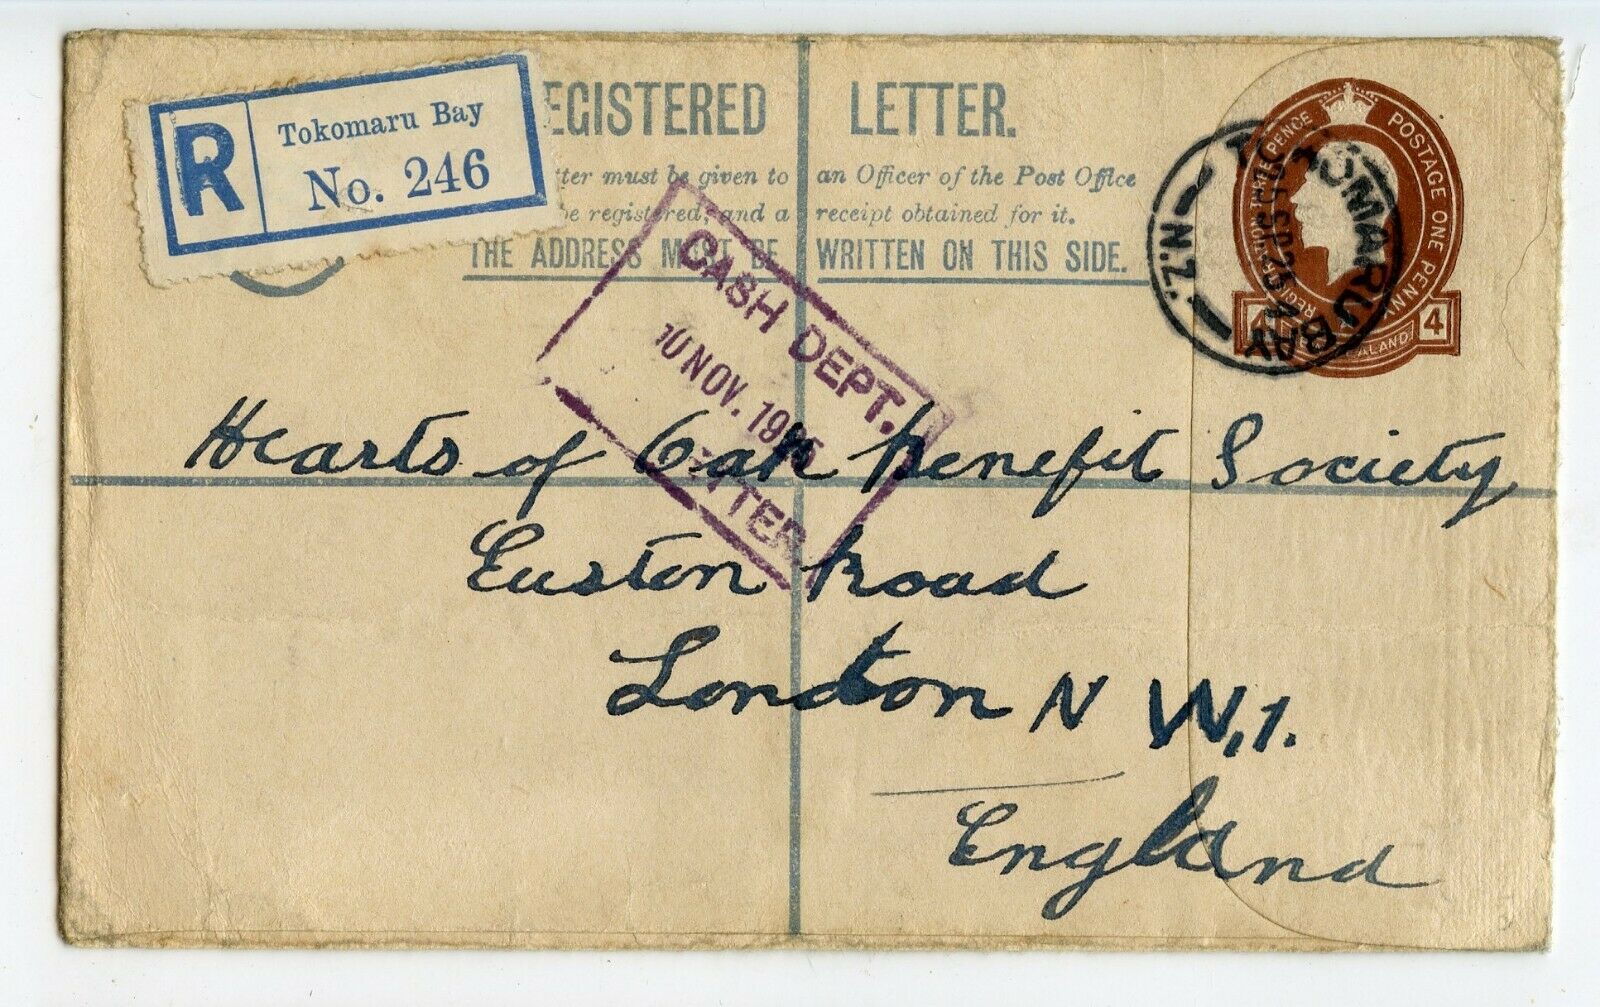 R
Tokomaru Bay
No. 246
EGISTERED LETTER.
tter must be given to an Officer of the Post Office
be registered, and a receipt obtained for it.
THE ADDRESS MUST BE WRITTEN ON THIS SIDE.
POSTAGE ONE PENNY
PENCE
4 ALAND 4
TOKOMARU BAY
N.Z.
CASH DEPT.
10 NOV. 1925
ETTER
Hearts of Oak Benefit Society
Euston Road
London N W,1.
England